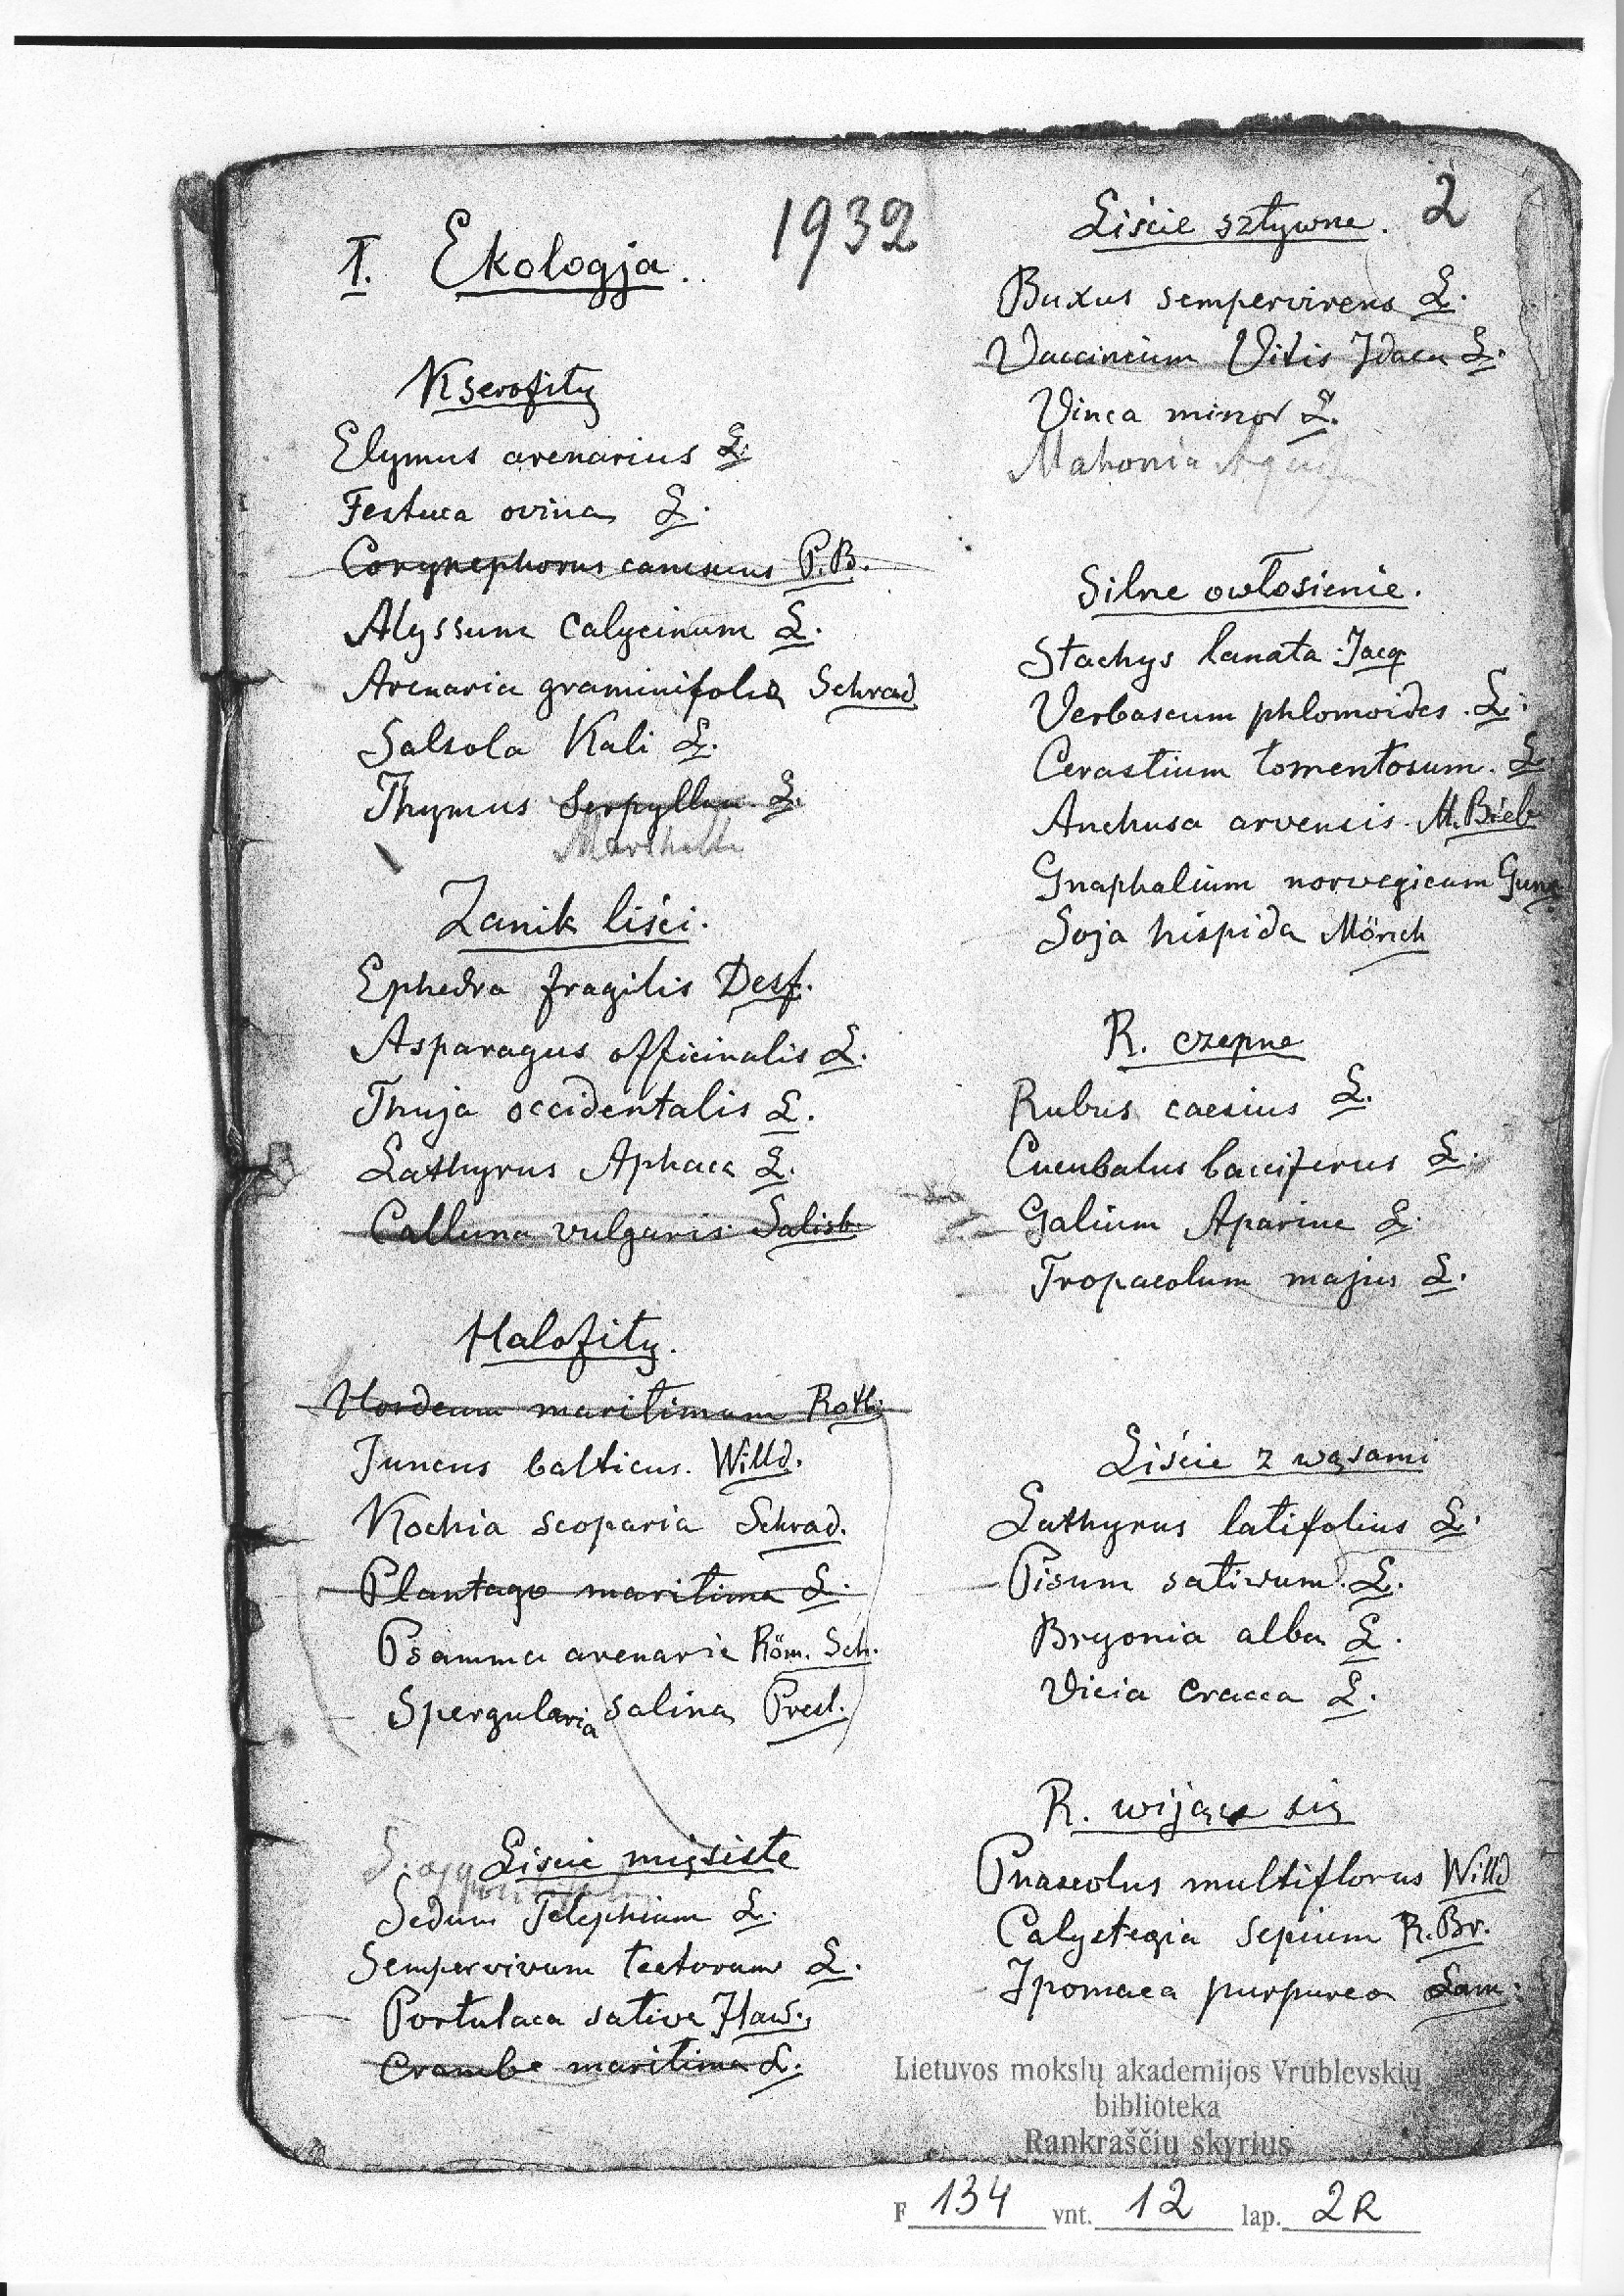 I. Ekologja.
1932
Kserofity
Elymus arenarius L.
Festuca ovina L.
Corynephorus canescens P.B.
Alyssum calycinum L.
Arenaria graminifolia Schrad
Salsola Kali L.
Thymus Serpyllum L.
Zanik liści.
Ephedra fragilis Desf.
Asparagus officinalis L.
Thuja occidentalis L.
Lathyrus Aphaca L.
Calluna vulgaris Salisb.
Halofity.
Hordeum maritimum Roth.
Juncus balticus. Willd.
Kochia scoparia Schrad.
Plantago maritima L.
Psamma arenaria Röm. Sch.
Spergularia salina Presl.
Liście mięsiste
Sedum Telephium L.
Sempervivum tectorum L.
Portulaca sativa Haw.
Crambe maritima L.
2
Liście sztywne.
Buxus sempervirens L.
Vaccinium Vitis Idaea L.
Vinca minor L.
Mahonia
Silne owłosienie.
Stachys lanata Jacq
Verbascum phlomoides. L.
Cerastium tomentosum. L.
Anchusa arvensis. M. Bieb
Gnaphalium norvegicum Gunn
Soja hispida Mönch
R. czepne
Rubus caesius L.
Cucubalus bacciferus L.
Galium Aparine L.
Tropaeolum majus L.
Liście z wąsami
Lathyrus latifolius L.
Pisum sativum. L.
Bryonia alba L.
Vicia cracca L.
R. wijące się
Phaseolus multiflorus Willd
Calystegia sepium R. Br.
Ipomaea purpurea Lam.
Lietuvos mokslų akademijos Vrublevskių
biblioteka
Rankraščių skyrius
F 134 vnt. 12 lap. 2R